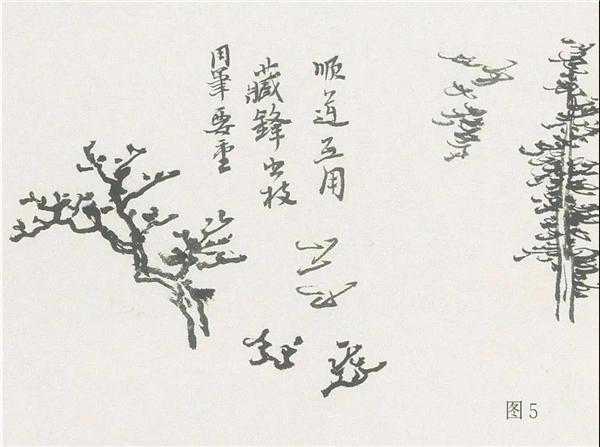 顺逆互用
藏鋒出枝
用筆要重
图5